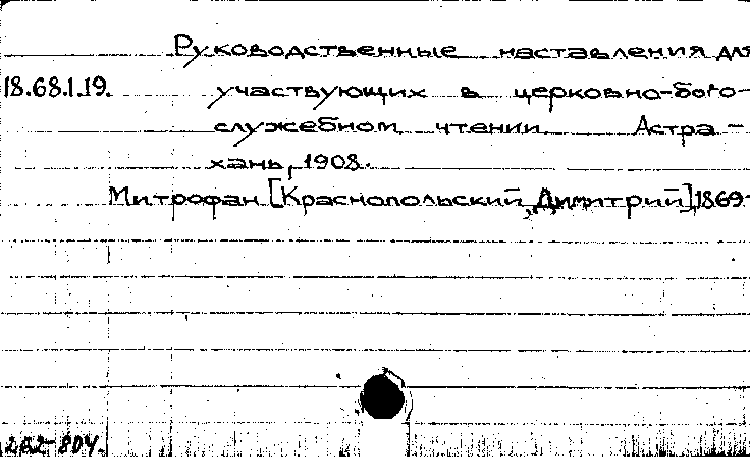 Руководственные наставления для
18.68.1.19. участвующих в церковно-бого-
служебном чтении Астра-
хань, 1908.
Митрофан [Краснопольский, Димитрий] 1869-
262-804.